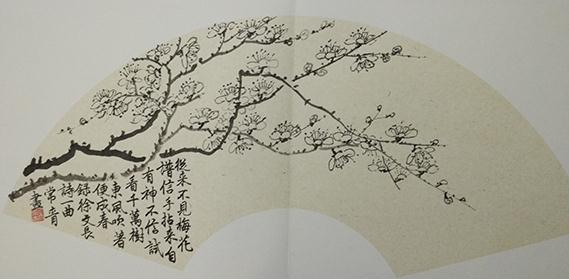 從来不見梅花
譜信手拈来自
有神不信試
看千萬樹
東風吹著
便成春
錄徐文長
詩一曲
常音
畫